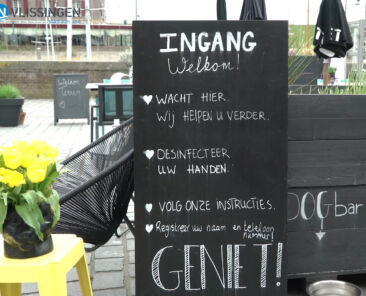 VLISSINGEN
INGANG
Welkom!
WACHT HIER.
Wij HELPEN U VERDER.
DESINFECTEER
UW HANDEN.
VOLG ONZE INSTRUCTIES.
Registreer uw naam en telefoon
nummer!
GENIET!
DOGbar
Welkom